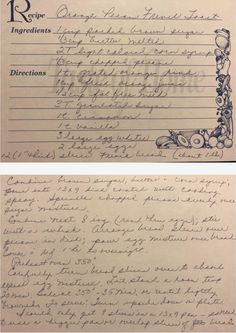 Recipe Orange Pecan French Toast
Ingredients 1 cup packed brown sugar
butter melted
2 T light colored corn syrup
cup chopped pecans
Directions 1 t. grated orange rind
1 cup fresh orange juice
cup fat free milk
3 T granulated sugar
1 t. cinnamon
1 t. vanilla
3 large egg whites
2 large eggs
12 (1" thick) slices French bread (about 1 lb)
Combine brown sugar, butter + corn syrup;
pour into 13x9 dish coated with cooking
spray. Sprinkle chopped pecans evenly over
sugar mixture.
Combine next 8 ing (rind thru eggs); stir
with a whisk. Arrange bread slices over
pecans in dish; pour egg mixture over bread.
Cover + 1 hr to overnight.
Preheat oven 350°
Carefully turn bread slices over to absorb
egg mixture. Let stand @ room temp
20 min. Bake @ 350° - 35 min. or until lightly
browned.
I could only get 9 slices in a 13x9 pan
use a bigger pan or overlap slices of bread